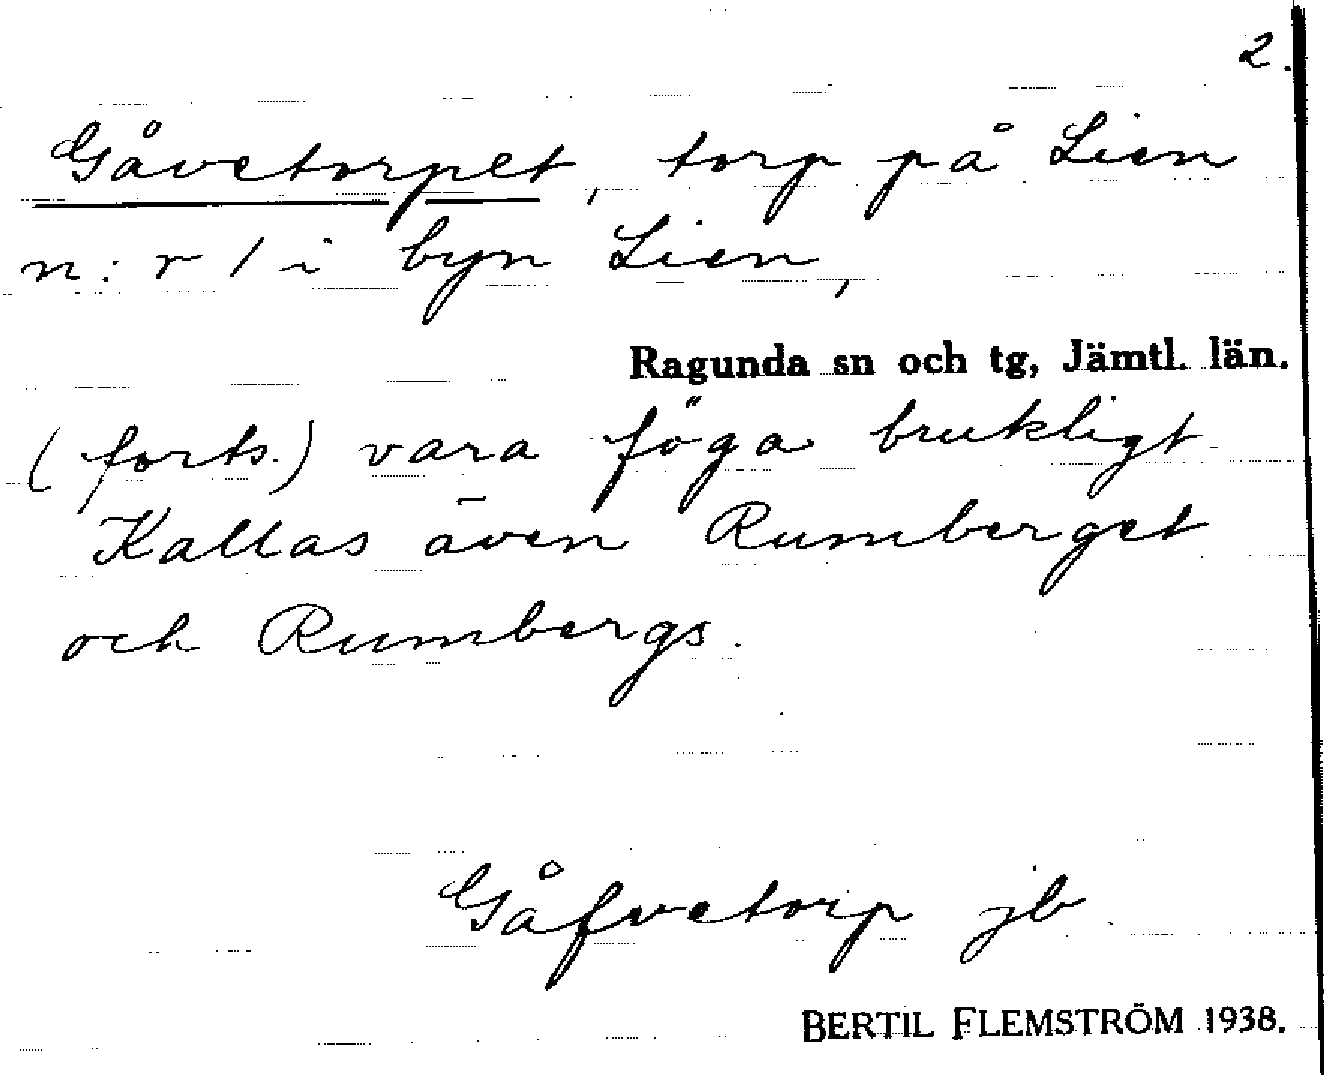 2.
Gåvetorpet, torp på Lien
n:r 1 i byn Lien,
Ragunda sn och tg, Jämtl. län.
(forts.) vara föga brukligt
Kallas även Rumberget
och Rumbergs.
Gåfvetorp jb
BERTIL FLEMSTRÖM 1938.